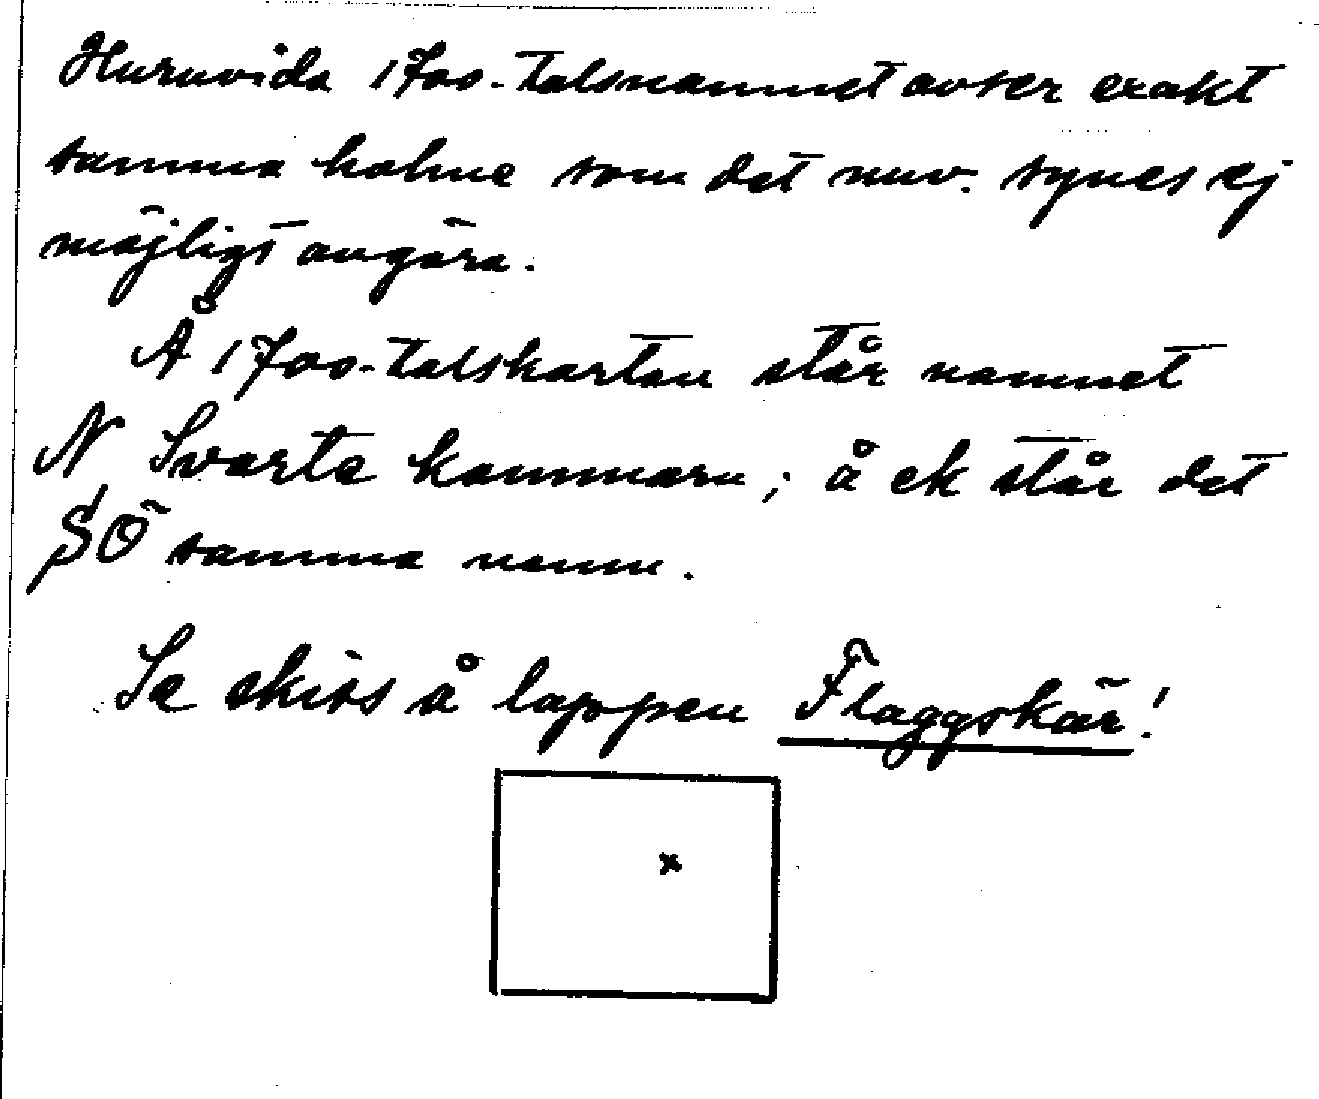 Huruvida 1700-talsnamnet avser exakt
samma holme som det nuv. synes ej
möjligt avgöra.
Å 1700-talskartan står namnet
N Svarta kammarn; å ek står det
SÖ samma namn.
Se skiss å lappen Flaggskär!
x